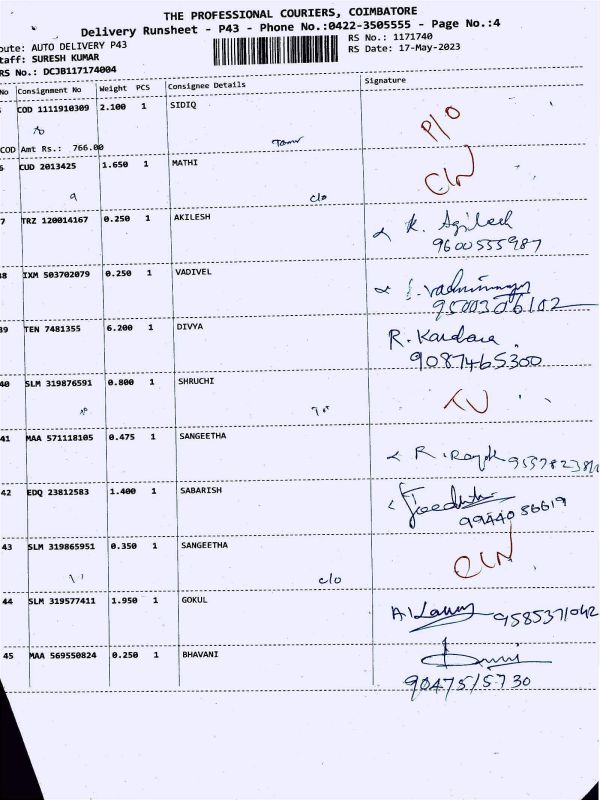 THE PROFESSIONAL COURIERS, COIMBATORE
Delivery Runsheet - P43 - Phone No.:0422-3505555 - Page No.:4
oute: AUTO DELIVERY P43
RS No.: 1171740
taff: SURESH KUMAR
RS Date: 17-May-2023
RS No.: DCJB117174004
No Consignment No Weight PCS Consignee Details Signature
COD 1111910309 2.100 1 SIDIQ
P/O
COD Amt Rs.: 766.00
CUD 2013425 1.650 1 MATHI
c/o
7 TRZ 120014167 0.250 1 AKILESH
9600555987
38 IXM 503702079 0.250 1 VADIVEL
9500306102
39 TEN 7481355 6.200 1 DIVYA
R. Kardara
9087465300
40 SLM 319876591 0.800 1 SHRUCHI
41 MAA 571118105 0.475 1 SANGEETHA
42 EDQ 23812583 1.400 1 SABARISH
9944056619
43 SLM 319865951 0.350 1 SANGEETHA
c/o
44 SLM 319577411 1.950 1 GOKUL
9585371042
45 MAA 569550824 0.250 1 BHAVANI
9047515730